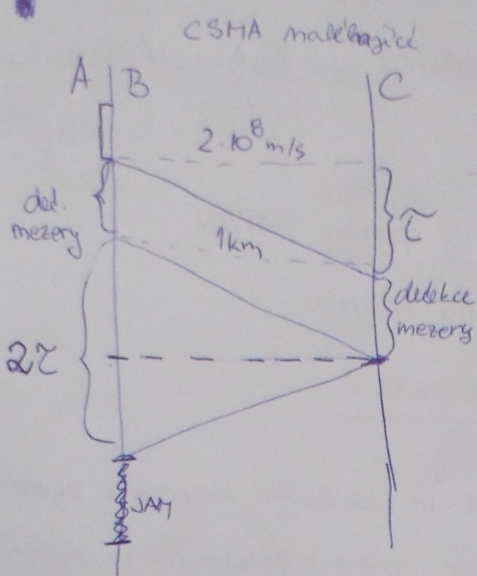 CSMA naléhající
A B C
2·10⁸ m/s
det.
mezery
τ
1km
detekce
mezery
2τ
JAM